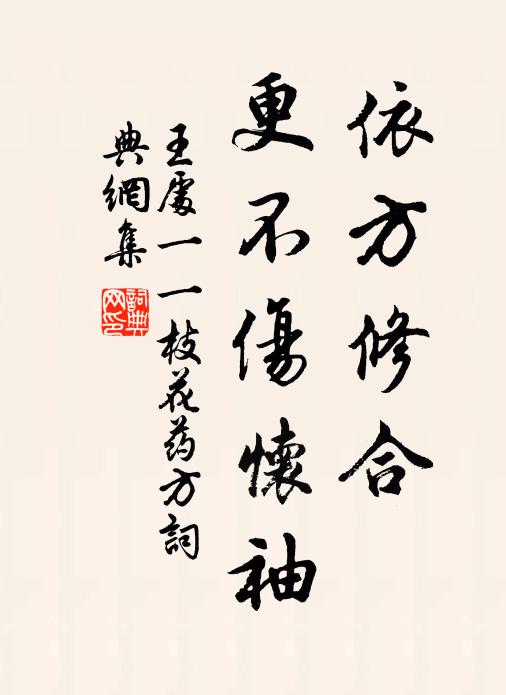 依方修合
更不傷懷袖
王處一一枝花药方詞
典網集
詞典
网印